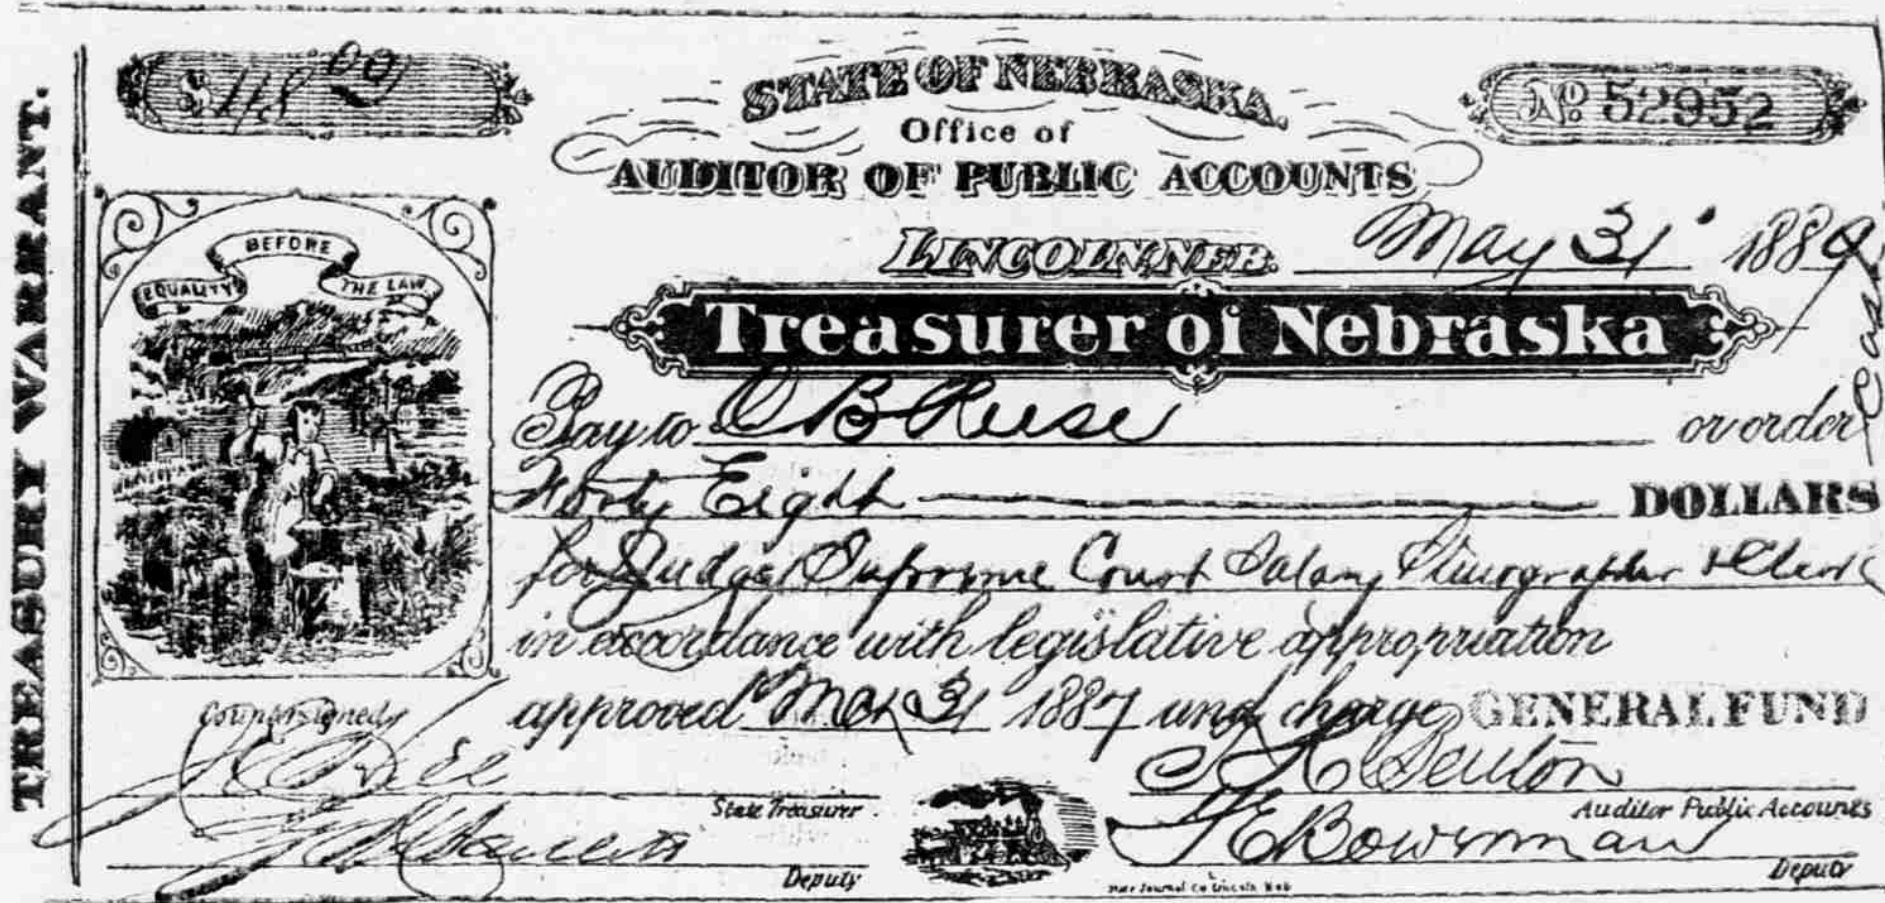 TREASURY WARRANT.
$48 00
STATE OF NEBRASKA.
Office of
AUDITOR OF PUBLIC ACCOUNTS
No. 52952
BEFORE
EQUALITY THE LAW
LINCOLN, NEB. May 31 1889
Treasurer of Nebraska
Pay to O B Reese or order
Forty Eight DOLLARS
for Judges Supreme Court Salary Stenographer & Clerk
in accordance with legislative appropriation
approved Mch 31 1887 and charge GENERAL FUND
Countersigned
State Treasurer.
Deputy
T H Benton
Auditor Public Accounts
Bowerman
Deputy
Journal Co Lincoln Neb